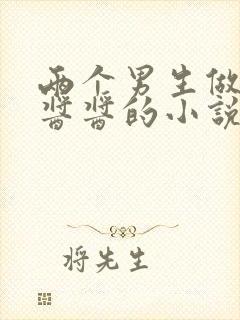 两个男生做
酱酱的小说
将先生